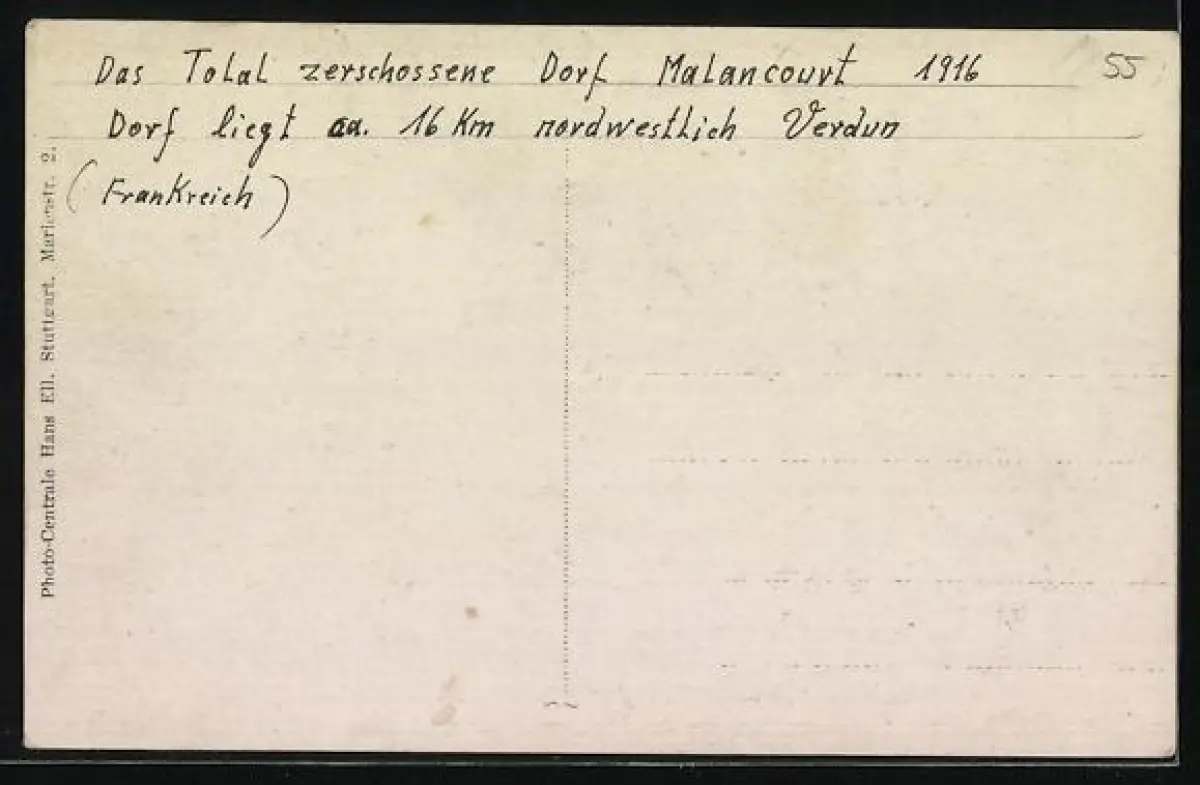 Das Total zerschossene Dorf Malancourt 1916 55
Dorf liegt ca. 16 Km nordwestlich Verdun
(Frankreich)
Photo-Centrale Hans Ell. Stuttgart. Marienstr. 2.